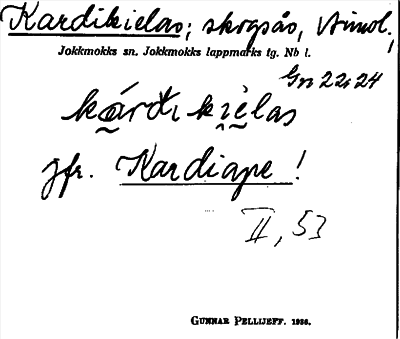 Kardikielas; skogsås, Aimol.,
Jokkmokks sn. Jokkmokks lappmarks tg. Nb l.
Gn 22, 24
kárdi kielas
jfr. Kardiape!
II, 53
GUNNAR PELLIJEFF. 1936.